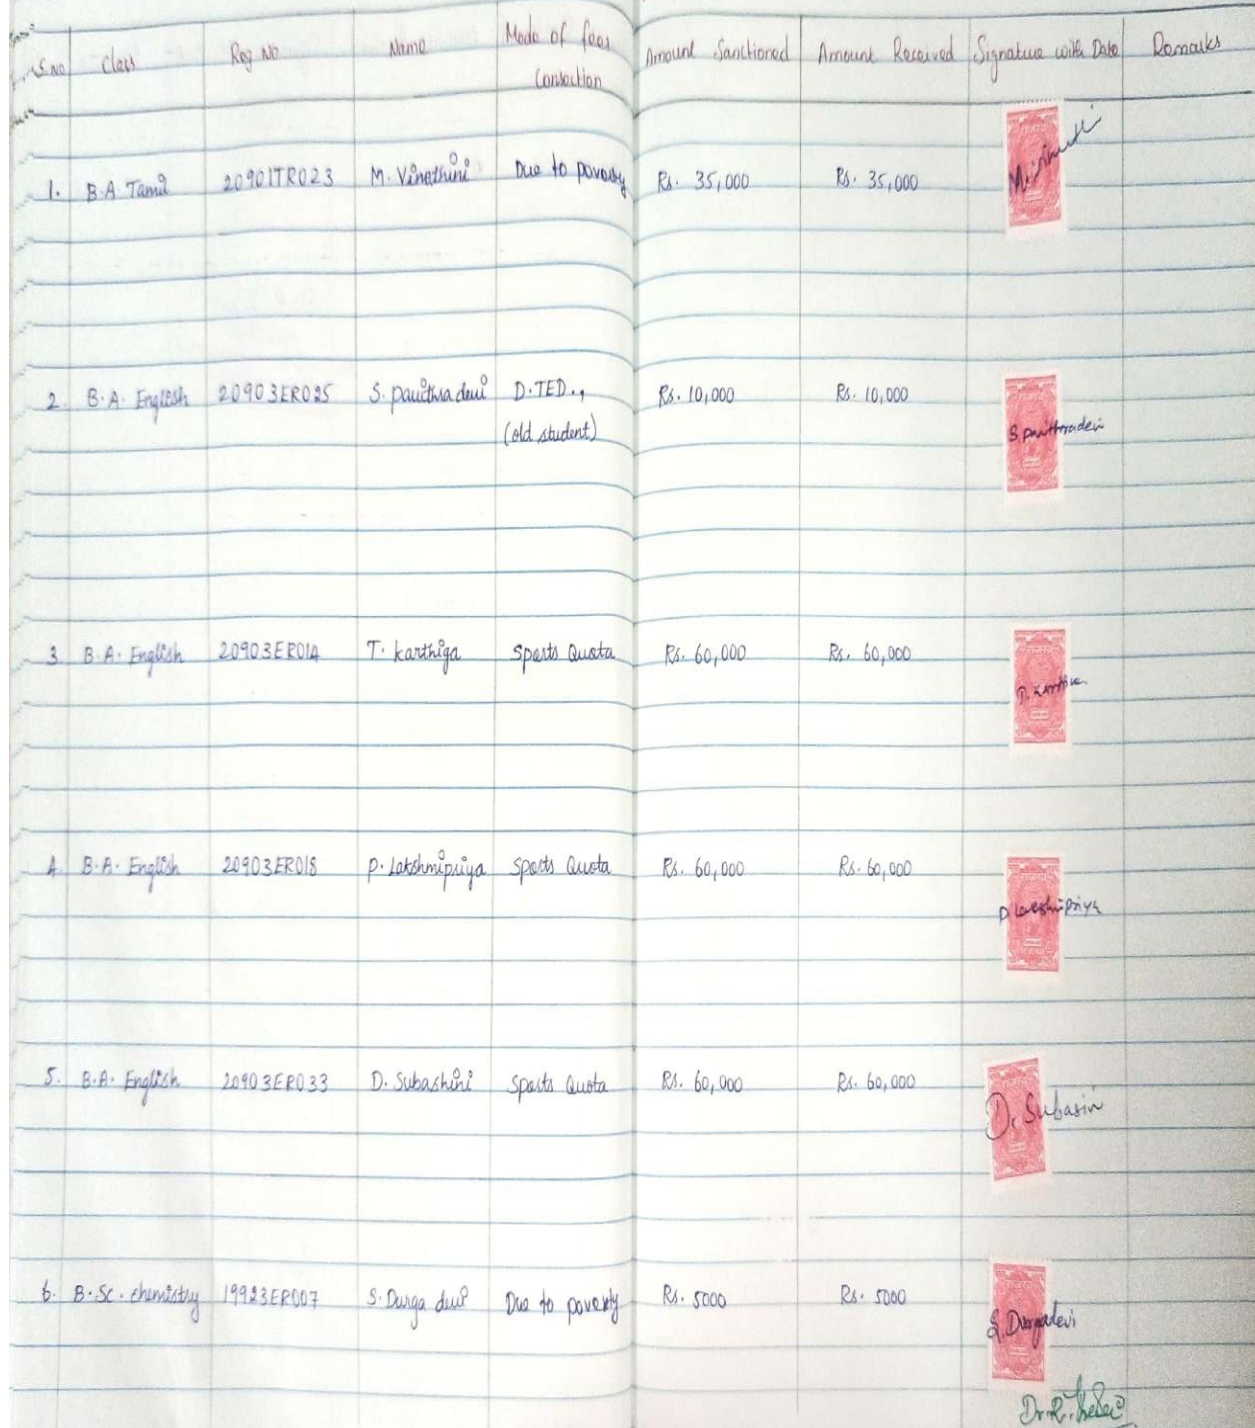 S.No Class Reg No Name Mode of fees Consection Amount Sanctioned Amount Received Signature with Date Remarks
1. B.A Tamil 20901TR023 M. Vinothini Due to poverty Rs. 35,000 Rs. 35,000
2. B.A. English 20903ER025 S. pavithra devi D.TED., Rs. 10,000 Rs. 10,000
(old student) S. pavithradevi
3. B.A. English 20903ER014 T. karthiga Sports Quota Rs. 60,000 Rs. 60,000
4. B.A. English 20903ER018 P. Lakshmipriya Sports Quota Rs. 60,000 Rs. 60,000
5. B.A. English 20903ER033 D. Subashini Sports Quota Rs. 60,000 Rs. 60,000
D. Subasin
6. B.Sc. chemistry 19923ER007 S. Durga devi Due to poverty Rs. 5000 Rs. 5000
S. Durgadevi
Dr. R.